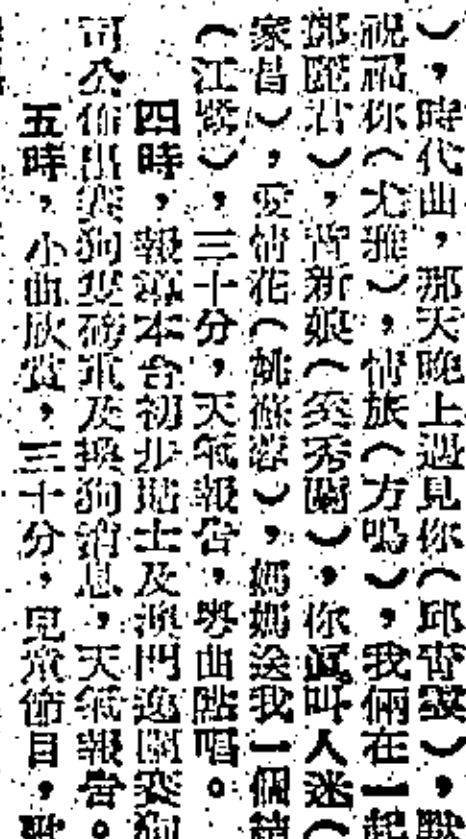 ），時代曲，那天晚上遇見你（邱雪
祝福你（尤雅），情旅（方鳴），我倆在一起
鄧麗君），背新娘（秀蘭），你真叫人迷（
家昌），愛情花（姚蘇蓉），媽媽送我一個
（江），三十分，天氣報告，粵曲點唱。
四時，報導本台初步貼士及澳門逸園賽狗
司公佈出賽狗隻磅重及換狗消息，天氣報告。
五時，小曲欣賞，三十分，兒童節目，